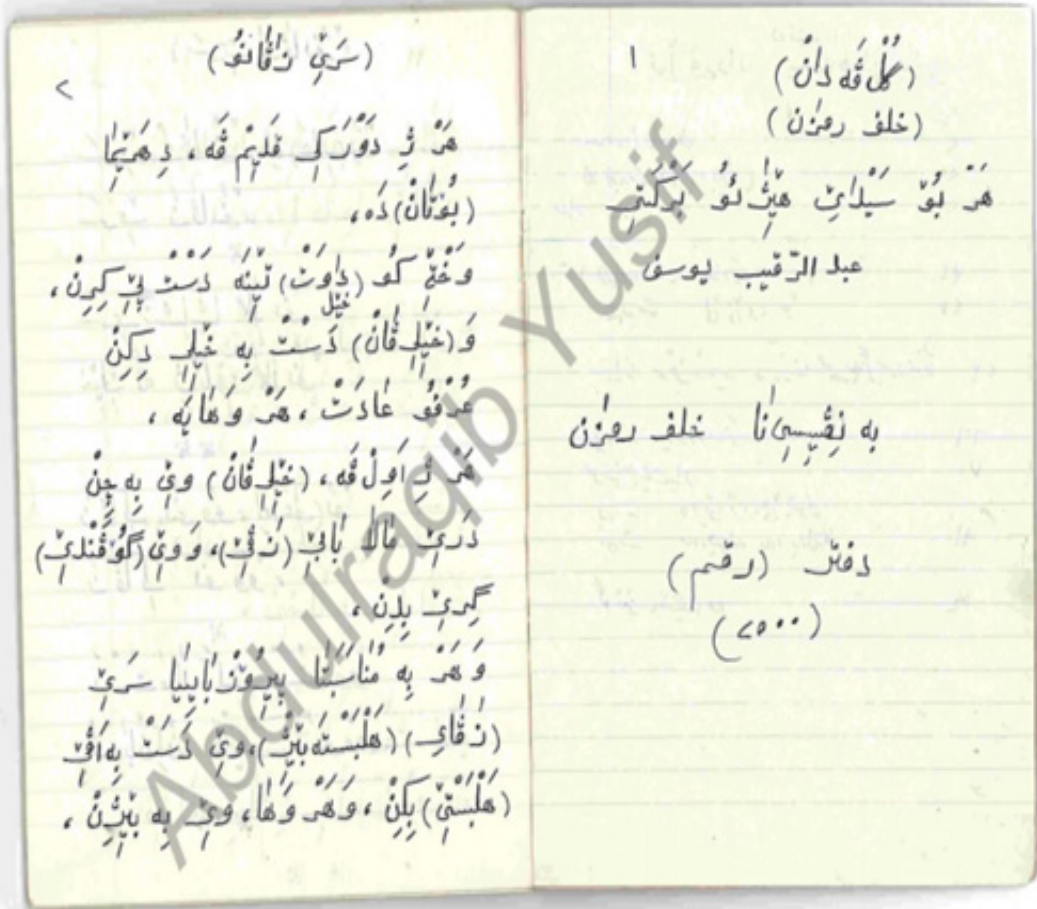 ١
(گُلْ ڤَه دَانْ)
(خلف رمزن)
هَرْ بُوۤ سَيْدَايِێ هێڗَّا كُو بَرْكَتِي
عبد الرّقيب يوسف
به نِڤِيسِيَانَا خلف رمزن
دفتر (رقم)
(٢٥٠٠)
٢
(سَرِێ زَاڤَانُو)
هَرْ ژِ دَوْرَكِی قَدِيْمْ ڤَه، دِ هَرێمَا
(بُوتَانْ) دَه،
وَخْتێ كُو (دَاوَتْ) تێنَه دَسْتْ پێ كِرِنْ،
خێل
وَ (خێلِيڤَانْ) دَسْتْ بِه خێلِی دِكِنْ
عُرْفُو عَادَتْ، هَرْ وَهَايَه،
هَرْ ژِ اَوِلْ ڤَه، (خێلِيڤَانْ) وێ بِه چِنْ
دَرِێ مَالَا بَابێ (زَاڤێ)، وَ وێ (گُوڤَنْدێ)
گِرێ بِدِنْ،
وَ هَرْ بِه مُنَاسَبَتَا پيرُوزْبَايِيَا سَرِێ
(زَاڤَايِ) (هَلْبَسْتَه بێژْ)، وێ دَسْتْ بِه اَڤێ
(هَلْبَسْتێ) بِكِنْ، وَ هَرْ وَهَا، وێ بِه بێژِنْ،
Abdulraqib Yusif